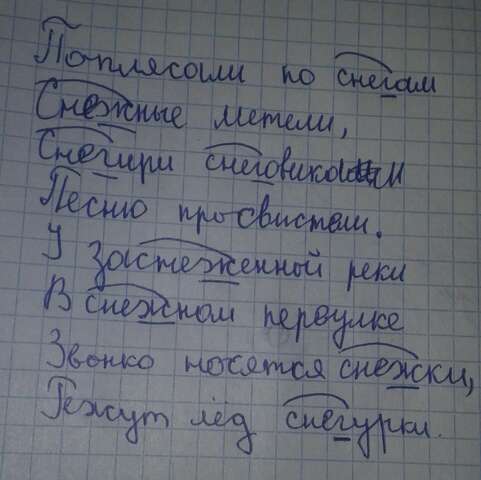 Поплясали по снегам
Снежные метели,
Снегири снеговикам
Песню просвистели.
У Застеженной реки
В снежном переулке
Звонко носятся снежки,
Режут лёд снегурки.